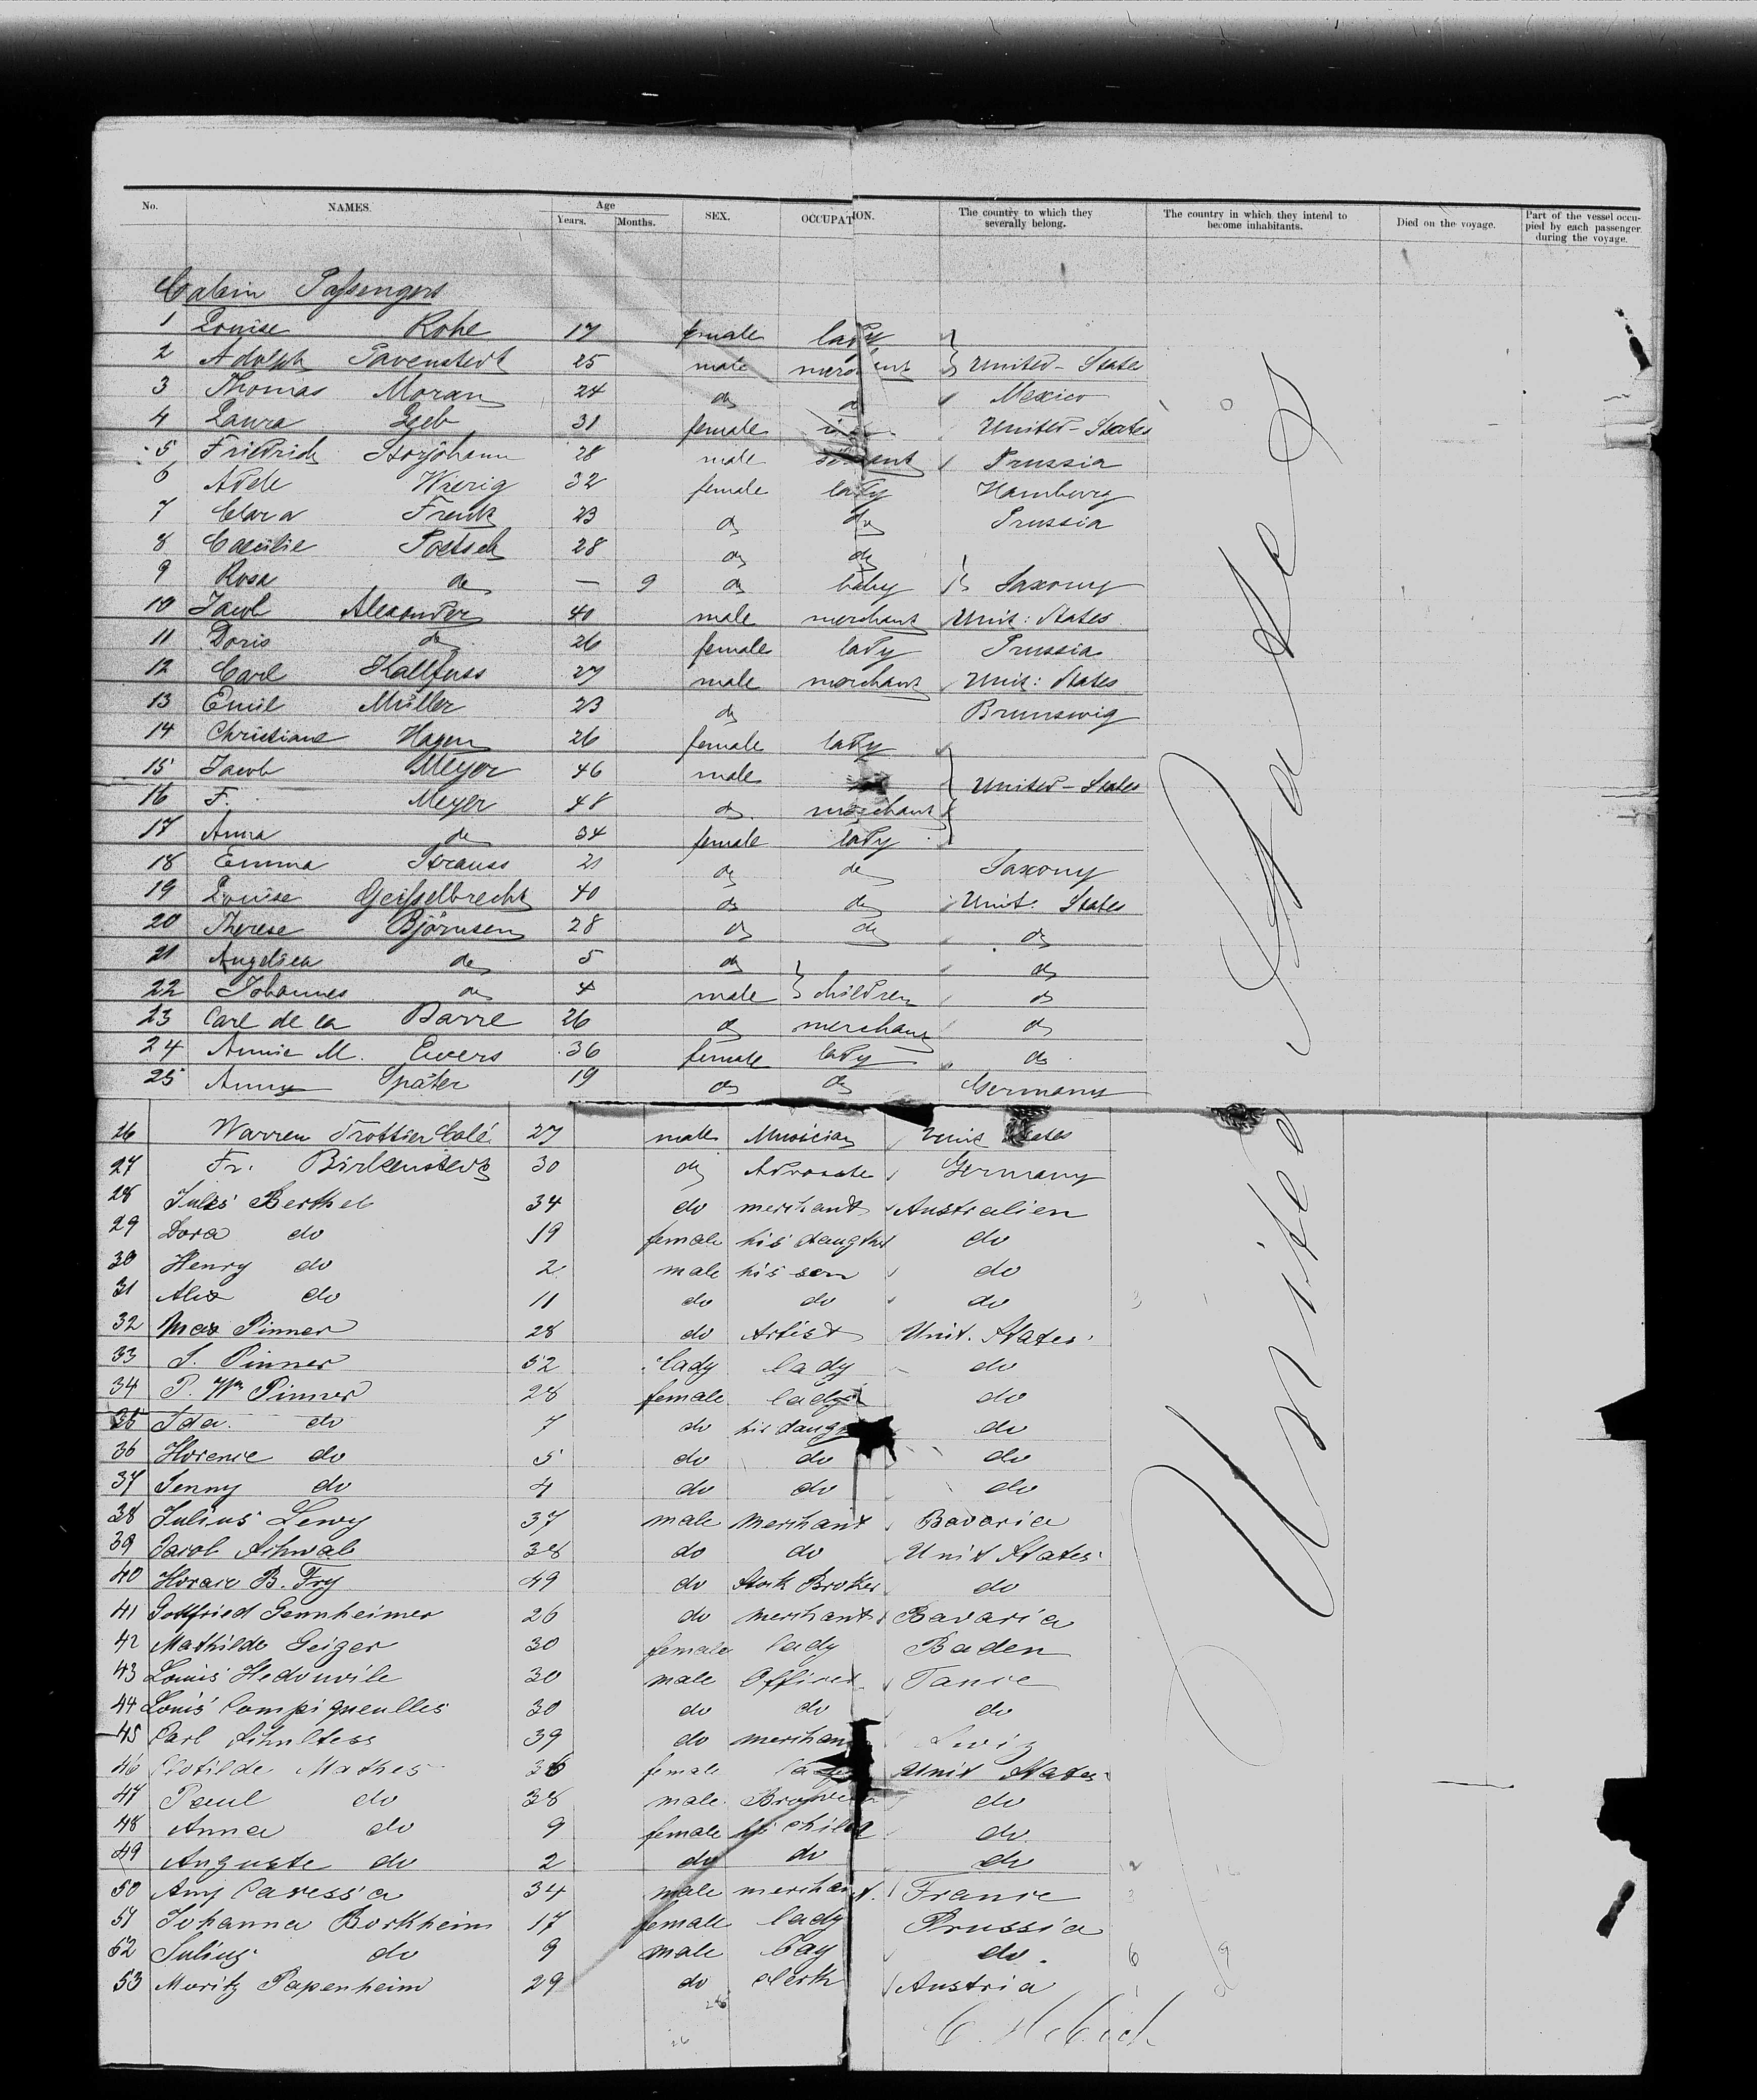 No. NAMES. Age Years. Months. SEX. OCCUPATION. The country to which they severally belong. The country in which they intend to become inhabitants. Died on the voyage. Part of the vessel occupied by each passenger during the voyage.
Cabin Passengers
1 Louise Rohe 17 female lady
2 Adolph Pavenstedt 25 male merchant United-States
3 Thomas Moran 24 do do Mexico
4 Laura Geeb 31 female United-States
5 Friedrich Storjohann 28 male servant Prussia
6 Adele Wierig 32 female lady Hambourg
7 Clara Frenk 23 do do Prussia
8 Caecilie Poetsch 28 do do
9 Rosa do — 9 do baby Saxony
10 Jacob Alexander 40 male merchant Unit: States
11 Doris do 26 female lady Prussia
12 Carl Kallfuss 27 male merchant Unit: States
13 Emil Müller 23 do Brunswig
14 Christiane Hagen 26 female lady
15 Jacob Meyer 46 male United-States
16 F. Meyer 48 do merchant
17 Anna do 34 female lady
18 Emma Strauss 21 do do Saxony
19 Louise Geisselbrecht 40 do do Unit: States
20 Therese Björnsen 28 do do do
21 Angelica do 5 do do
22 Johannes do 4 male children do
23 Carl de la Barre 26 do merchant do
24 Annie M. Ewers 36 female lady do
25 Anny Später 19 do do Germany
26 Warren Trottier Colé 27 male Musician Unit States
27 Fr. Birkenstedt 30 do Advocate Germany
28 Jules Berthel 34 do merchant Australien
29 Dora do 19 female his daugther do
30 Henry do 2 male his son do
31 Alex do 11 do do do
32 Max Pinner 28 do Artist Unit. States
33 S. Pinner 52 lady lady do
34 P. Wm Pinner 28 female lady do
35 Ida do 7 do his daugh do
36 Florence do 5 do do do
37 Jenny do 4 do do do
38 Julius Lewy 37 male merchant Bavaria
39 Jacob Schwab 38 do do Unit States
40 Horace B. Fry 49 do Stock Broker do
41 Gottfried Gennheimer 26 do merchant Bavaria
42 Mathilde Geiger 30 female lady Baden
43 Louis Hedouvile 30 male Officer
44 Louis Compigneulles 30 do do do
45 Carl Schultess 39 do merchant Swiz
46 Clotilde Mathes 36 female lady Unit States
47 Paul do 38 male Brower do
48 Anna do 9 female his child do
49 Auguste do 2 do do do
50 Amy Caressa 34 male merchant. France
51 Johanna Borkheim 17 female lady Prussia
52 Julius do 9 male boy do
53 Moritz Papenheim 29 do clerk Austria
United States